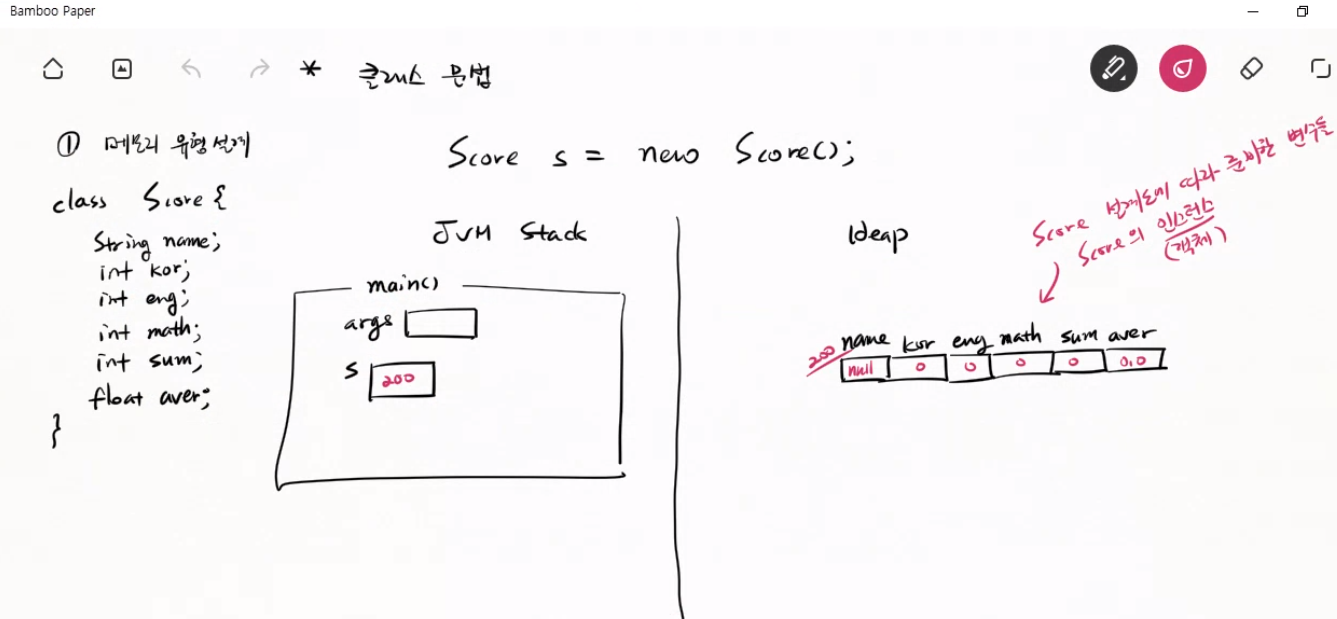 Bamboo Paper
* 클래스 문법
① 메모리 유형 설계
class Score {
String name;
int kor;
int eng;
int math;
int sum;
float aver;
}
Score s = new Score();
JVM Stack
main()
args
s
200
Heap
Score 설계도에 따라 준비한 변수들
Score의 인스턴스
(객체)
200
name kor eng math sum aver
null 0 0 0 0 0.0